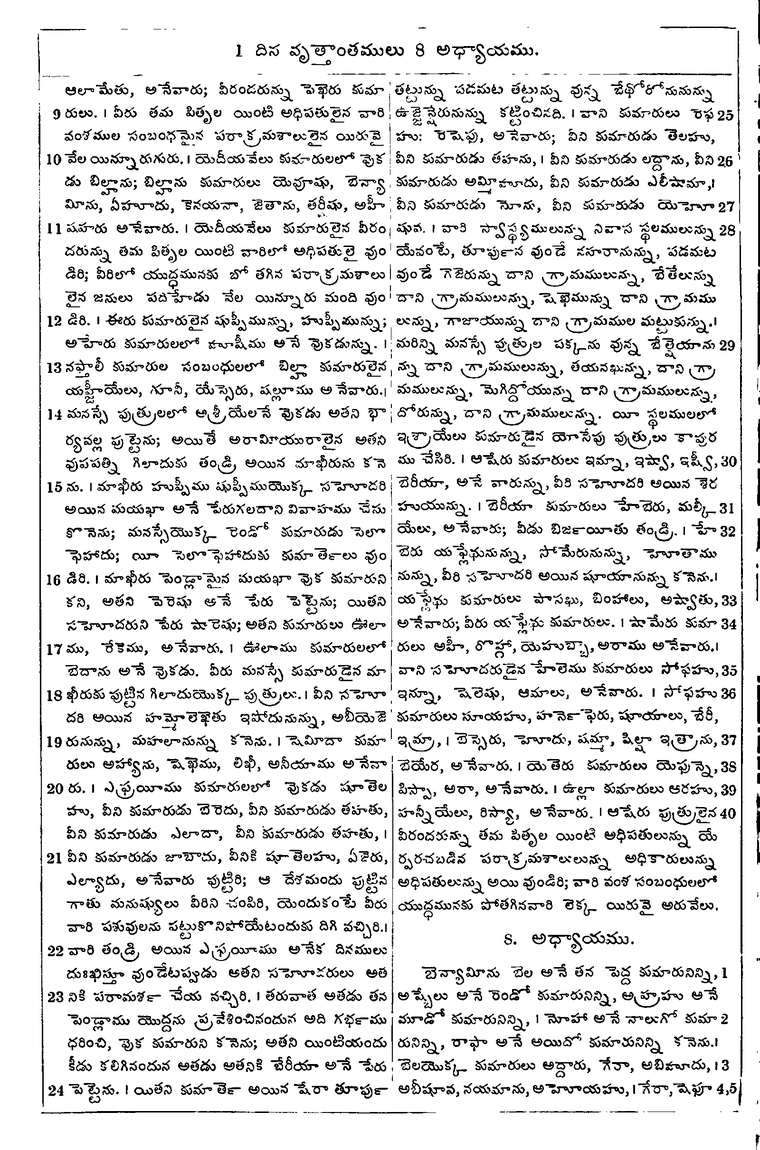 1 దిన వృత్తాంతములు 8 అధ్యాయము.
ఆలామేతు, అనేవారు; వీరందరున్ను పెఖెరు కుమా
9 రులు. । వీరు తమ పితృల యింటి అధిపతులైన వారి
వంశముల సంబంధమైన పరాక్రమశాలులైన యిరువై
10 వేల యిన్నూరుగురు. । యెదీయవేలు కుమారులలో వొక
డు బిల్హాను; బిల్హాను కుమారులు యెవూషు, బెన్యా
మీను, ఏహూదు, కెనయనా, జెతాను, తర్షీషు, అహీ
11 షహరు అనేవారు. । యెదీయవేలు కుమారులైన వీరం
దరున్ను తమ పితృల యింటి వారిలో అధిపతులై వుం
డిరి; వీరిలో యుద్ధమునకు బో తగిన పరాక్రమశాలు
లైన జనులు పదిహేడు వేల యిన్నూరు మంది వుం
12 డిరి. । ఈరు కుమారులైన షుప్పీమున్ను, హుప్పీమున్ను;
అహేరు కుమారులలో హుషీము అనే వొకడున్ను. ।
13 నఫ్తాలీ కుమారుల సంబంధులలో బిల్హా కుమారులైన
యహ్జీయేలు, గూనీ, యేస్సెరు, షల్లూము అనేవారు.।
14 మనస్సే పుత్రులలో అశ్రీయేలనే వొకడు అతని భా
ర్యవల్ల పుట్టెను; అయితే అరామీయురాలైన అతని
వుపపత్ని గిలాదుకు తండ్రి అయిన మాఖీరును కనె
15 ను. । మాఖీరు హుప్పీము షుప్పీముయొక్క సహోదరి
అయిన మయఖా అనే పేరుగలదాని వివాహము చేసు
కొనెను; మనస్సేయొక్క రెండో కుమారుడు సెలొ
ఫెహాదు; యీ సెలొఫెహాదుకు కుమార్తెలు వుం
16 డిరి. । మాఖీరు పెండ్లామైన మయఖా వొక కుమారుని
కని, అతని పెరెషు అనే పేరు పెట్టెను; యితని
సహోదరుని పేరు షారెషు; అతని కుమారులు ఊలా
17 ము, రేకెము, అనేవారు. । ఊలాము కుమారులలో
బెదాను అనే వొకడు. వీరు మనస్సే కుమారుడైన మా
18 ఖీరుకు పుట్టిన గిలాదుయొక్క పుత్రులు. । వీని సహో
దరి అయిన హమ్మోలెఖెతు ఇషోదునున్ను, అబీయెజె
19 రునున్ను, మహలానున్ను కనెను. । షెమీదా కుమా
రులు అహ్యాను, షెఖెము, లిఖీ, అనీయాము అనేవా
20 రు. । ఎఫ్రయీము కుమారులలో వొకడు షూతెల
హు, వీని కుమారుడు బెరెదు, వీని కుమారుడు తహతు,
వీని కుమారుడు ఎలాదా, వీని కుమారుడు తహతు, ।
21 వీని కుమారుడు జాబాదు, వీనికి షూతెలహు, ఏజెరు,
ఎల్యాదు, అనేవారు పుట్టిరి; ఆ దేశమందు పుట్టిన
గాతు మనుష్యులు వీరిని చంపిరి, యెందుకంటే వీరు
వారి పశువులను పట్టుకొనిపోయేటందుకు దిగి వచ్చిరి.।
22 వారి తండ్రి అయిన ఎఫ్రయీము అనేక దినములు
దుఃఖిస్తూ వుండేటప్పుడు అతని సహోదరులు అత
23 నికి పరామర్శ చేయ వచ్చిరి. । తరువాత అతడు తన
పెండ్లాము యొద్దను ప్రవేశించినందున అది గర్భము
ధరించి, వొక కుమారుని కనెను; అతని యింటియందు
కీడు కలిగినందున అతడు అతనికి బేరీయా అనే పేరు
24 పెట్టెను. । యితని కుమార్తె అయిన షేరా తూర్పు
తట్టున్ను పడమట తట్టున్ను వున్న బేథోరోనునున్ను
ఉజ్జెన్షేరునున్ను కట్టించినది. । వాని కుమారులు రెఫ 25
హు: రెషెపు, అనేవారు; వీని కుమారుడు తెలహు,
వీని కుమారుడు తహను, । వీని కుమారుడు లద్దాను, వీని 26
కుమారుడు అమ్మీహూదు, వీని కుమారుడు ఎలీషామా,।
వీని కుమారుడు నోను, వీని కుమారుడు యెహో 27
షువ. । వారి స్వాస్థ్యములున్ను నివాస స్థలములున్ను 28
యేవంటే, తూర్పున వుండే నహరానున్ను, పడమట
వుండే గెజెరున్ను దాని గ్రామములున్ను, బేతేలున్ను
దాని గ్రామములున్ను, షెఖెమున్ను దాని గ్రామము
లున్ను, గాజాయున్ను దాని గ్రామముల మట్టుకున్ను.।
మరిన్ని మనస్సే పుత్రుల పక్కను వున్న బేత్షెయాను 29
న్ను దాని గ్రామములున్ను, తయనఖున్ను, దాని గ్రా
మములున్ను, మెగిద్దోయున్ను దాని గ్రామములున్ను,
దోరున్ను, దాని గ్రామములున్ను. యీ స్థలములలో
ఇశ్రాయేలు కుమారుడైన యోసేపు పుత్రులు కాపుర
ము చేసిరి. । ఆషేరు కుమారులు ఇమ్నా, ఇష్వా, ఇష్వీ, 30
బెరీయా, అనే వారున్ను, వీరి సహోదరి అయిన శెర
హుయున్ను. । బెరీయా కుమారులు హేబెరు, మల్కీ 31
యేలు, అనేవారు; వీడు బిర్జాయీతు తండ్రి. । హే 32
బెరు యఫ్లేథునున్ను, సోమేరునున్ను, హోతాము
నున్ను, వీరి సహోదరి అయిన షూయానున్ను కనెను.।
యఫ్లేథు కుమారులు పాసఖు, బింహాలు, అష్వాతు, 33
అనేవారు; వీరు యఫ్లేథు కుమారులు. । షామేరు కుమా 34
రులు అహీ, రొహ్గా, యెహుబ్బా, అరాము అనేవారు.।
వాని సహోదరుడైన హేలెము కుమారులు సోఫహు, 35
ఇమ్నా, షెలెషు, ఆమాలు, అనేవారు. । సోఫహు 36
కుమారులు సూయహు, హర్నెఫెరు, షూయాలు, బేరీ,
ఇమ్రా, । బెస్సెరు, హోదు, షమ్మా, షిల్షా ఇత్రాను, 37
బెయేర, అనేవారు. । యెతెరు కుమారులు యెఫున్నె, 38
పిస్పా, అరా, అనేవారు. । ఉల్లా కుమారులు ఆరహు, 39
హన్నీయేలు, రిస్యా, అనేవారు. । ఆషేరు పుత్రులైన 40
వీరందరున్ను తమ పితృల యింటి అధిపతులున్ను యే
ర్పరచబడిన పరాక్రమశాలులున్ను అధికారులున్ను
అధిపతులున్ను అయి వుండిరి; వారి వంశ సంబంధులలో
యుద్ధమునకు పోతగినవారి లెక్క యిరువై ఆరువేలు.
8. అధ్యాయము.
బెన్యామీను బెల అనే తన పెద్ద కుమారునిన్ని, 1
అష్బేలు అనే రెండో కుమారునిన్ని, అహ్రహు అనే
మూడో కుమారునిన్ని, । నోహా అనే నాలుగో కుమా 2
రునిన్ని, రాఫా అనే అయిదో కుమారునిన్ని కనెను.।
బెలయొక్క కుమారులు అద్దారు, గేరా, అబీహూదు, । 3
అబీషూవ, నయమాను, అహోయహు, । గేరా, షెఫూ 4,5